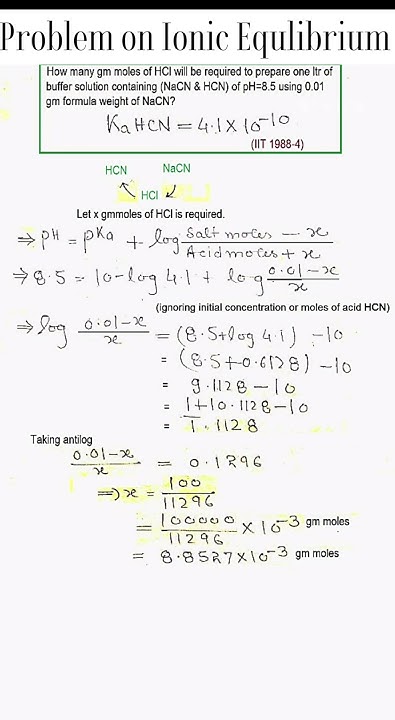 Problem on Ionic Equlibrium
How many gm moles of HCl will be required to prepare one ltr of
buffer solution containing (NaCN & HCN) of pH=8.5 using 0.01
gm formula weight of NaCN?
Ka HCN = 4.1 × 10⁻¹⁰
(IIT 1988-4)
HCN NaCN
HCl
Let x gmmoles of HCl is required.
⇒ pH = pKa + log (Salt moles − x)/(Acid moles + x)
⇒ 8.5 = 10 − log 4.1 + log (0.01 − x)/x
(ignoring initial concentration or moles of acid HCN)
⇒ log (0.01 − x)/x = (8.5 + log 4.1) − 10
= (8.5 + 0.6128) − 10
= 9.1128 − 10
= 1̅ + 10.1128 − 10
= 1̅.1128
Taking antilog
(0.01 − x)/x = 0.1296
⇒ x = 100/11296
= 100000/11296 × 10⁻³ gm moles
= 8.8527 × 10⁻³ gm moles